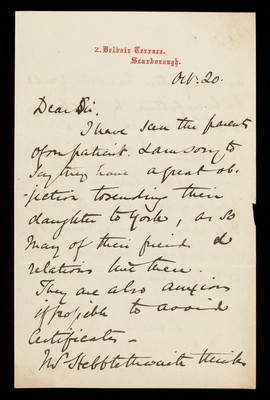 2. Belvoir Terrace.
Scarborough.
Oct. 20.
Dear Sir.
I have seen the parents
of our patient. I am sorry to
say they have a great ob-
-jection to sending their
daughter to York, as so
many of their friends &
relations live there.
They are also anxious
if possible to avoid
Certificates -
Mrs Hebblethwaite thinks